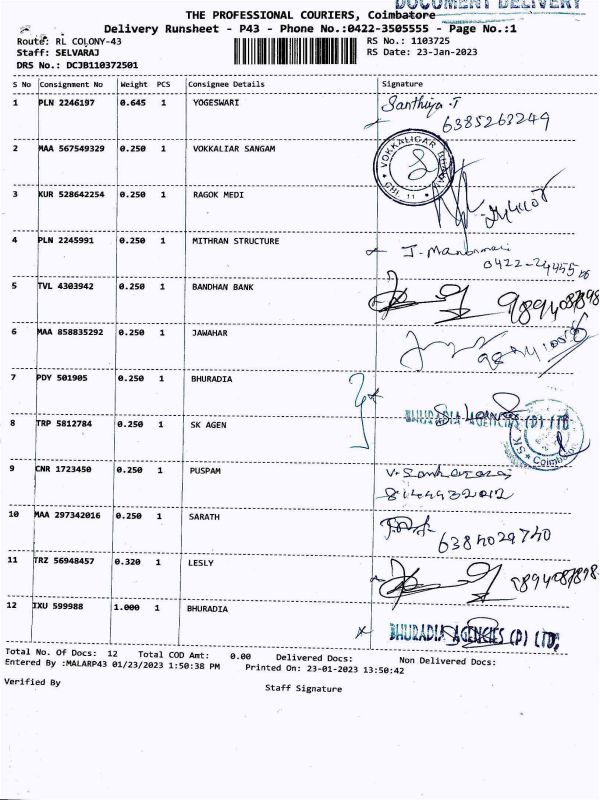 DOCUMENT DELIVERY
THE PROFESSIONAL COURIERS, Coimbatore
Delivery Runsheet - P43 - Phone No.:0422-3505555 - Page No.:1
Route: RL COLONY-43 RS No.: 1103725
Staff: SELVARAJ RS Date: 23-Jan-2023
DRS No.: DCJB110372501
S No Consignment No Weight PCS Consignee Details Signature
1 PLN 2246197 0.645 1 YOGESWARI Santhiya.T
6385263249
2 MAA 567549329 0.250 1 VOKKALIAR SANGAM VOKKALIGAR
3 KUR 528642254 0.250 1 RAGOK MEDI
4 PLN 2245991 0.250 1 MITHRAN STRUCTURE
5 TVL 4303942 0.250 1 BANDHAN BANK
6 MAA 858835292 0.250 1 JAWAHAR
7 PDY 501905 0.250 1 BHURADIA
BHURADIA AGENCIES (P) LTD
8 TRP 5812784 0.250 1 SK AGEN
9 CNR 1723450 0.250 1 PUSPAM
10 MAA 297342016 0.250 1 SARATH
6384029740
11 TRZ 56948457 0.320 1 LESLY
12 IXU 599988 1.000 1 BHURADIA
BHURADIA AGENCIES (P) LTD.
Total No. Of Docs: 12 Total COD Amt: 0.00 Delivered Docs: Non Delivered Docs:
Entered By :MALARP43 01/23/2023 1:50:38 PM Printed On: 23-01-2023 13:50:42
Verified By
Staff Signature